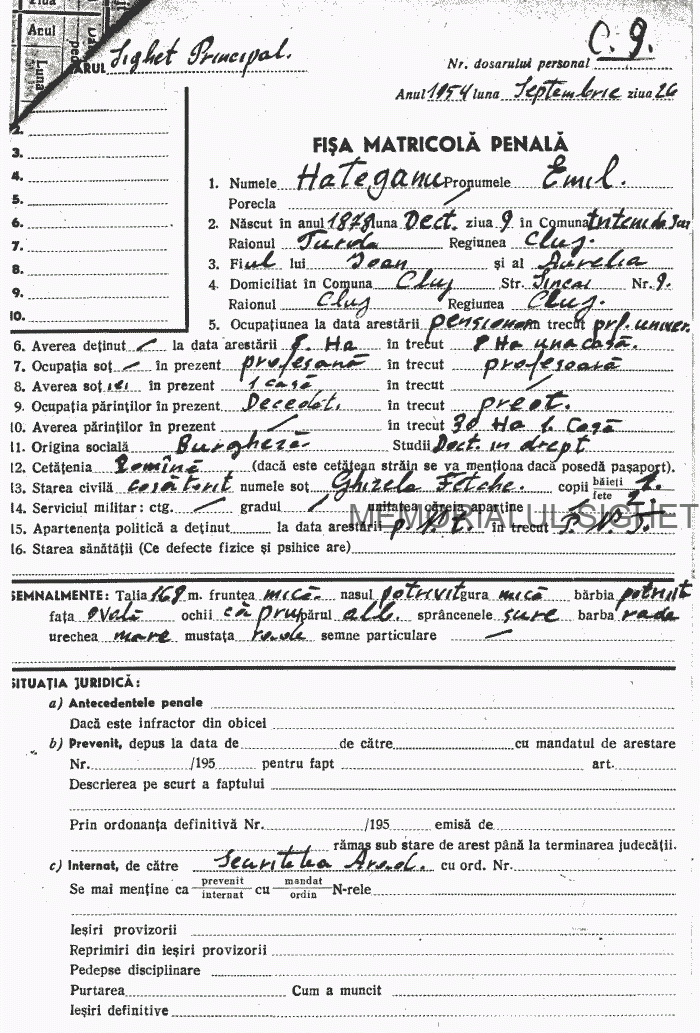 Ziua
Arul
Luna
ARUL Sighet Principal.
C. 9.
Nr. dosarului personal
Anul 1954 luna Septembrie ziua 26
2.
3.
4.
5.
6.
7.
8.
9.
10.
FIŞA MATRICOLĂ PENALĂ
1. Numele Hateganu Pronumele Emil.
Porecla
2. Născut în anul 1878 luna Dect. ziua 9 în Comuna
Raionul Turda Regiunea Cluj.
3. Fiul lui Ioan şi al Aurelia
4. Domiciliat în Comuna Cluj Str. Sincai Nr. 9.
Raionul Cluj Regiunea Cluj.
5. Ocupaţiunea la data arestării pensionar trecut prf. univer.
6. Averea deţinut la data arestării 8. Ha în trecut 8 Ha una casă.
7. Ocupaţia soţ în prezent în trecut profesoară
8. Averea soţiei în prezent 1 casă în trecut
9. Ocupaţia părinţilor în prezent Decedat. în trecut preot.
10. Averea părinţilor în prezent în trecut 30 Ha 1. Casă
11. Origina socială Burgheză Studii Doct. in drept
12. Cetăţenia Romînă (dacă este cetăţean străin se va menţiona dacă posedă paşaport).
13. Starea civilă căsătorit numele soţ copii băieţi 1.
fete 2.
14. Serviciul militar: ctg. gradul unitatea căreia aparţine
MEMORIALUL SIGHET
15. Apartenenţa politică a deţinut la data arestării P. N. Ţ. în trecut P. N. Ţ.
16. Starea sănătăţii (Ce defecte fizice şi psihice are)
SEMNALMENTE: Talia 168 m. fruntea mică nasul potrivit gura mică bărbia potrivit
faţa ovală ochii căprui părul alb. sprâncenele sure barba rade
urechea mare mustaţa rade semne particulare
SITUAŢIA JURIDICĂ:
a) Antecedentele penale
Dacă este infractor din obicei
b) Prevenit, depus la data de de către cu mandatul de arestare
Nr. /195 pentru fapt art.
Descrierea pe scurt a faptului
Prin ordonanţa definitivă Nr. /195 emisă de
rămas sub stare de arest până la terminarea judecăţii.
c) Internat, de către Securitatea Arad. cu ord. Nr.
Se mai menţine ca prevenit internat cu mandat ordin N-rele
Ieşiri provizorii
Reprimiri din ieşiri provizorii
Pedepse disciplinare
Purtarea Cum a muncit
Ieşiri definitive